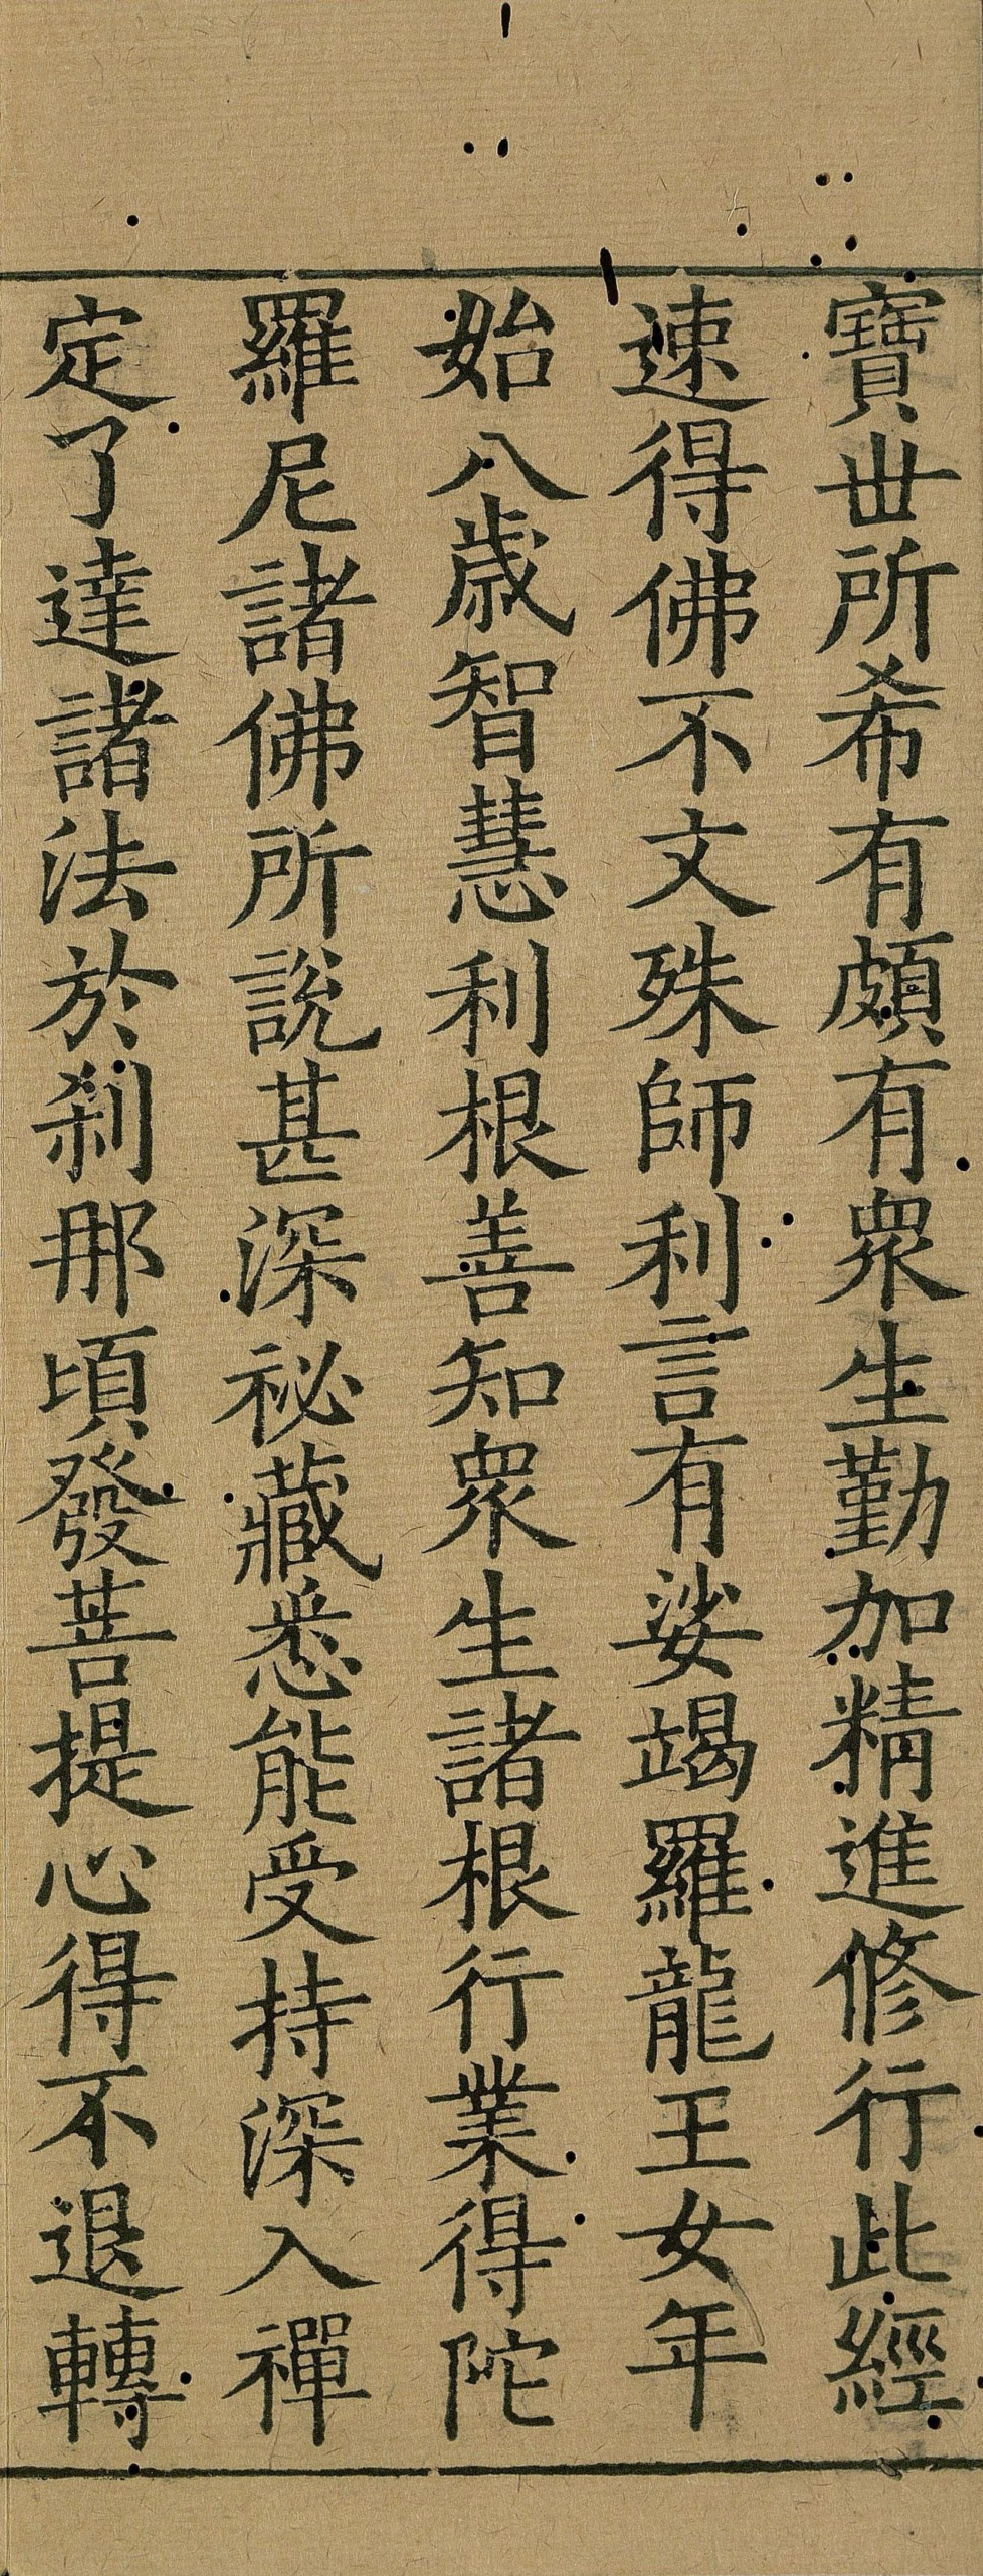 寶世所希有頗有衆生勤加精進修行此經
速得佛不文殊師利言有娑竭羅龍王女年
始八歲智慧利根善知衆生諸根行業得陀
羅尼諸佛所說甚深祕藏悉能受持深入禪
定了達諸法於刹那頃發菩提心得不退轉